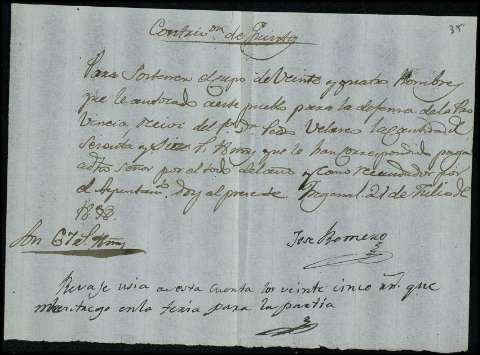 38
Contrivon. de Quinto
Para Sostener el cupo de Veinte y quatro Hombres
que le an tocado a este pueblo para la defensa de la Pro
vincia, Recivi del Sr. Dn. Pedro Velasco la cantidad
Sesenta y Siete rs. que le han correspondido pagar
a dho Señor por el todo del año y como recaudador por
el Ayuntamto. doy el presente 21 de Julio de
Son 67 rs.
Jose Romero
Revaje usia a esta cuenta los veinte cinco rn. que
me entrego en la feria para la partia